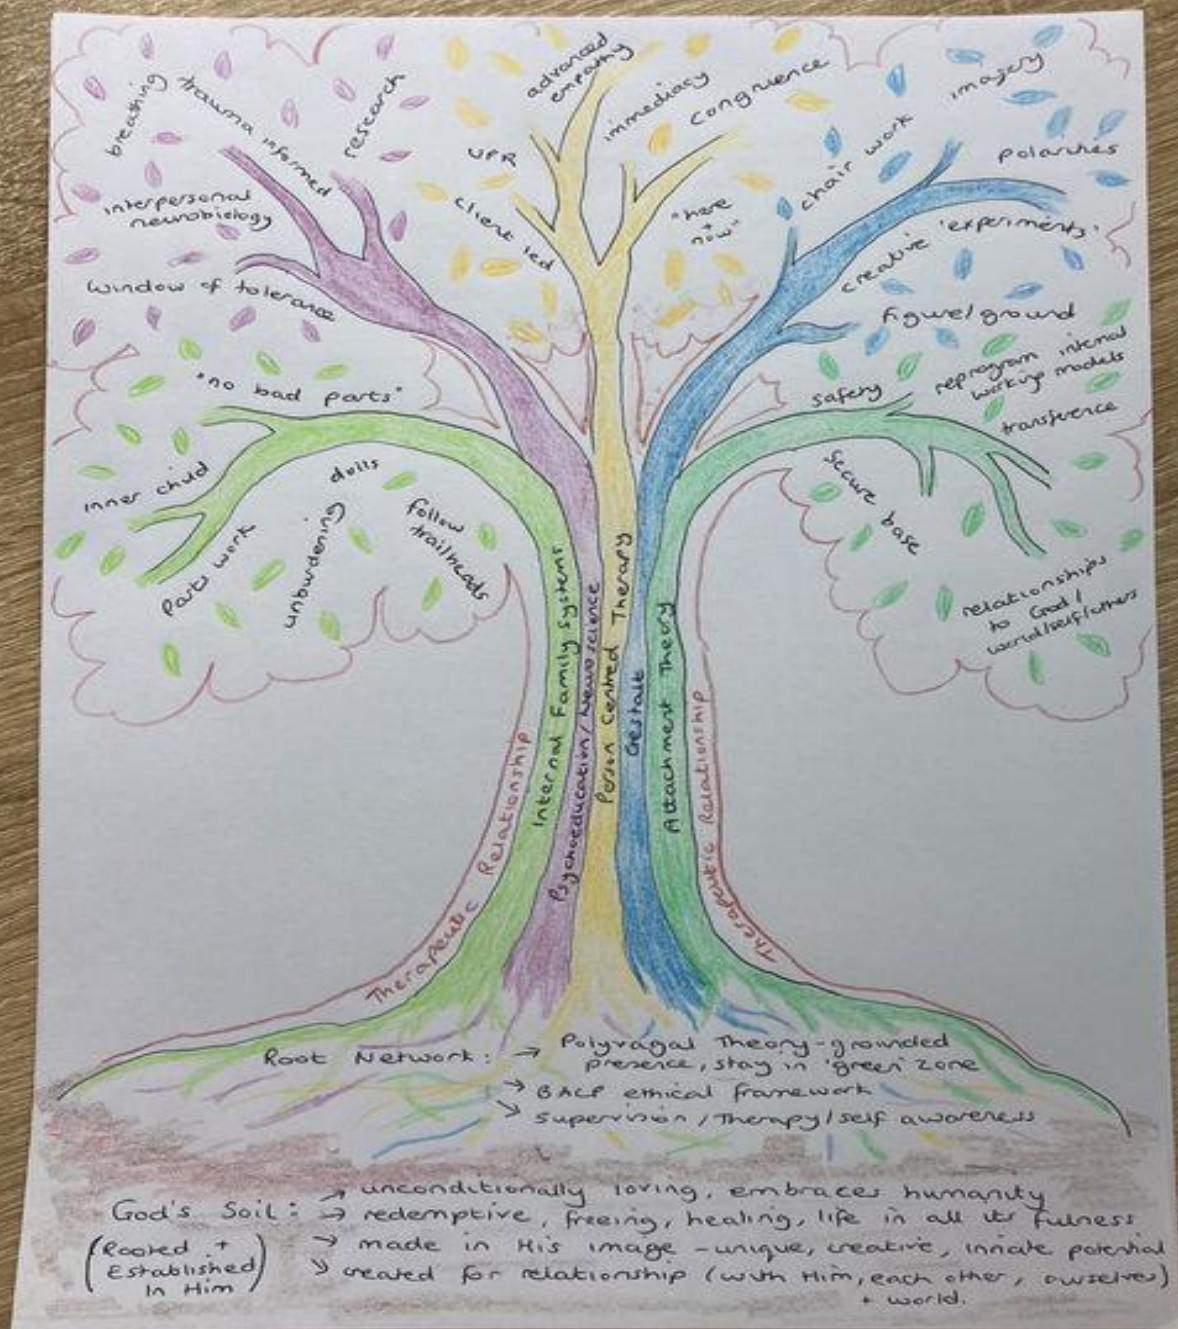 breathing
trauma informed
research
interpersonal
neurobiology
window of tolerance
UPR
client led
advanced
empathy
immediacy
congruence
"here
+
now"
chair work
imagery
polarities
creative 'experiments'
figure/ground
"no bad parts"
inner child
parts work
dolls
unburdening
follow
trailheads
safety
reprogram internal
working models
transference
secure base
relationships
to God/
world/self/others
Therapeutic Relationship
Internal Family Systems
Psychoeducation/Neuroscience
Person Centred Therapy
Gestalt
Attachment Theory
Therapeutic Relationship
Root Network: → Polyvagal Theory - grounded
presence, stay in 'green' zone
→ BACP ethical framework
→ Supervision/Therapy/self awareness
God's Soil: → unconditionally loving, embraces humanity
→ redemptive, freeing, healing, life in all its fulness
(Rooted +
Established
In Him)
→ made in His image - unique, creative, innate potential
→ created for relationship (with Him, each other, ourselves)
+ world.